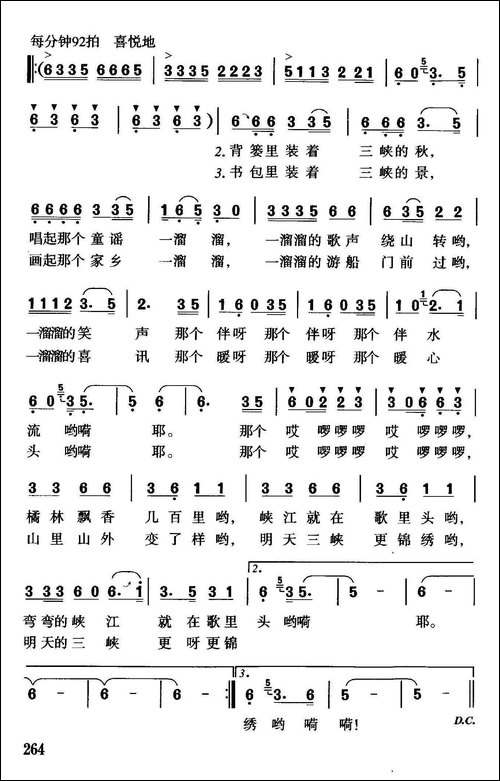 每分钟92拍 喜悦地
‖:(6335 6665 | 3335 2223 | 5113 223 | 6 0 5 3. 5
6 3 6 3 | 6 3 6 3) | 6 66 3 35 | 6 66 3. 5
2.背篓里装着 三峡的秋,
3.书包里装着 三峡的景,
6666 3 35 | 1 65 3 0 | 3335 3 6 | 6 35 2 2
唱起那个童谣 一溜溜, 一溜溜的歌声 绕山转哟,
画起那个家乡 一溜溜, 一溜溜的游船 门前过哟,
1112 3. 5 | 2. 35 | 16035 16035 | 1 0 1 2. 1
一溜溜的笑声 那个伴呀那个伴呀那个伴水
一溜溜的喜讯 那个暖呀那个暖呀那个暖心
6 0 5 35. | 5 6 6. | 35 | 6 0 2 2 3 | 3 0 6 6 3
流哟嗬耶。 那个哎啰啰啰哎啰啰啰,
头哟嗬耶。 那个哎啰啰啰哎啰啰啰,
3 3 6 6 | 3 6 1 1 | 3 3 6 6 | 3 6 1 1
橘林飘香 几百里哟, 峡江就在 歌里头哟,
山里山外 变了样哟, 明天三峡 更锦绣哟,
3 33 6 0 6. 1 | 3. 5 3 1 | 2. 6 5 35. | 6 -
弯弯的峡江 就在歌里头哟嗬 耶。
明天的三峡 更呀更锦
6 - | 6 - | 6 - | 6 - :‖ 3. 6 5 3. 6 | 5 - | 5 - ‖
绣哟嗬嗬! D.C.
264